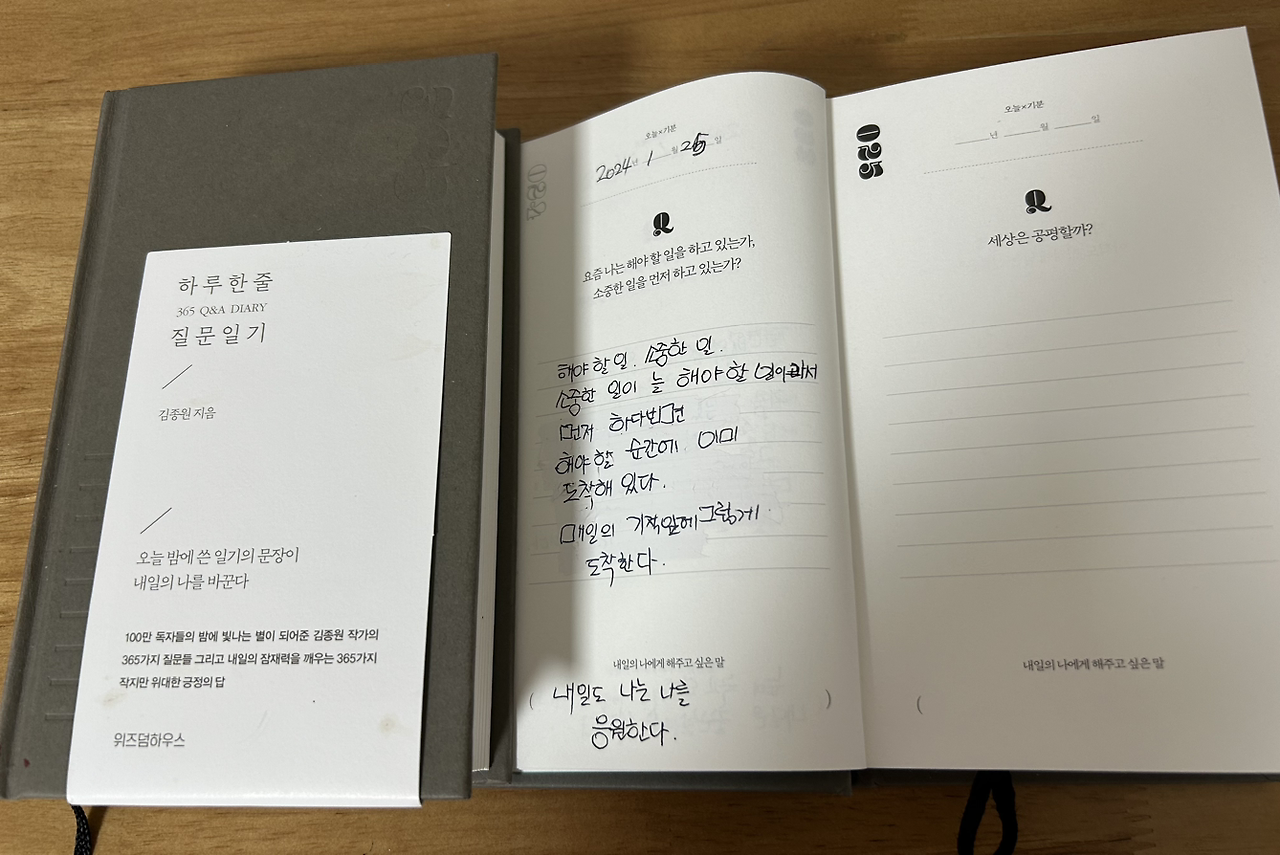 하루한줄
365 Q&A DIARY
질문일기
김종원 지음
오늘 밤에 쓴 일기의 문장이
내일의 나를 바꾼다
100만 독자들의 밤에 빛나는 별이 되어준 김종원 작가의
365가지 질문들 그리고 내일의 잠재력을 깨우는 365가지
작지만 위대한 긍정의 답
위즈덤하우스
오늘×기분
2024년 1월 일
Q
요즘 나는 해야 할 일을 하고 있는가,
소중한 일을 먼저 하고 있는가?
해야 할 일. 소중한 일.
소중한 일이 늘 해야 할 일이라서
먼저 하다보면
해야 할 순간에 이미
도착해 있다.
매일의 기적앞에 그렇게
도착한다.
내일의 나에게 해주고 싶은 말
( 내일도 나는 나를 )
응원한다.
025
오늘×기분
년 월 일
Q
세상은 공평할까?
내일의 나에게 해주고 싶은 말
(